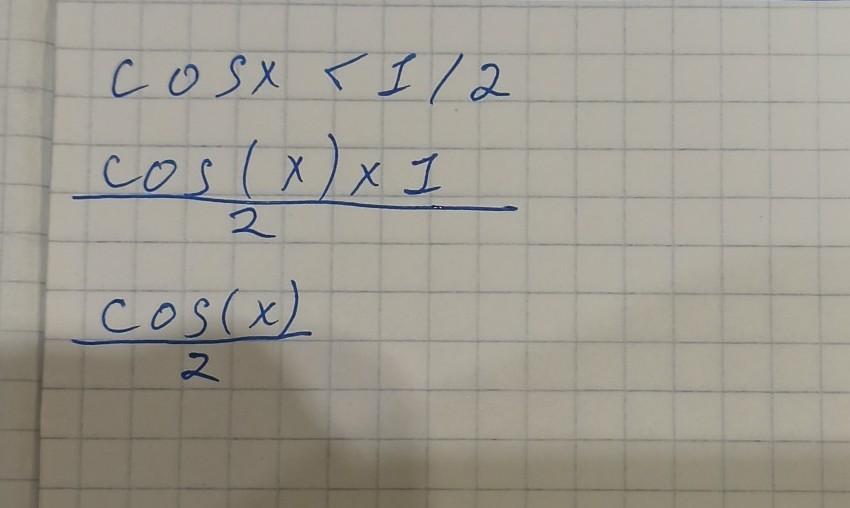 cosx < 1/2
cos(x) x 1
2
cos(x)
2